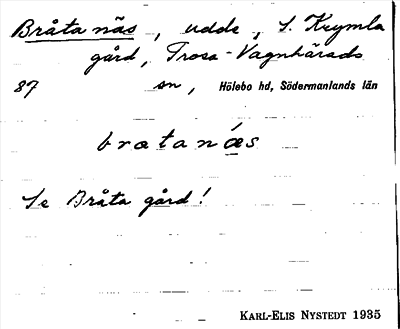 Bråta näs, udde, S. Krymla
gård, Trosa-Vagnhärads
87 sn, Hölebo hd, Södermanlands län
bratanǽs
Se Bråta gård!
KARL-ELIS NYSTEDT 1935